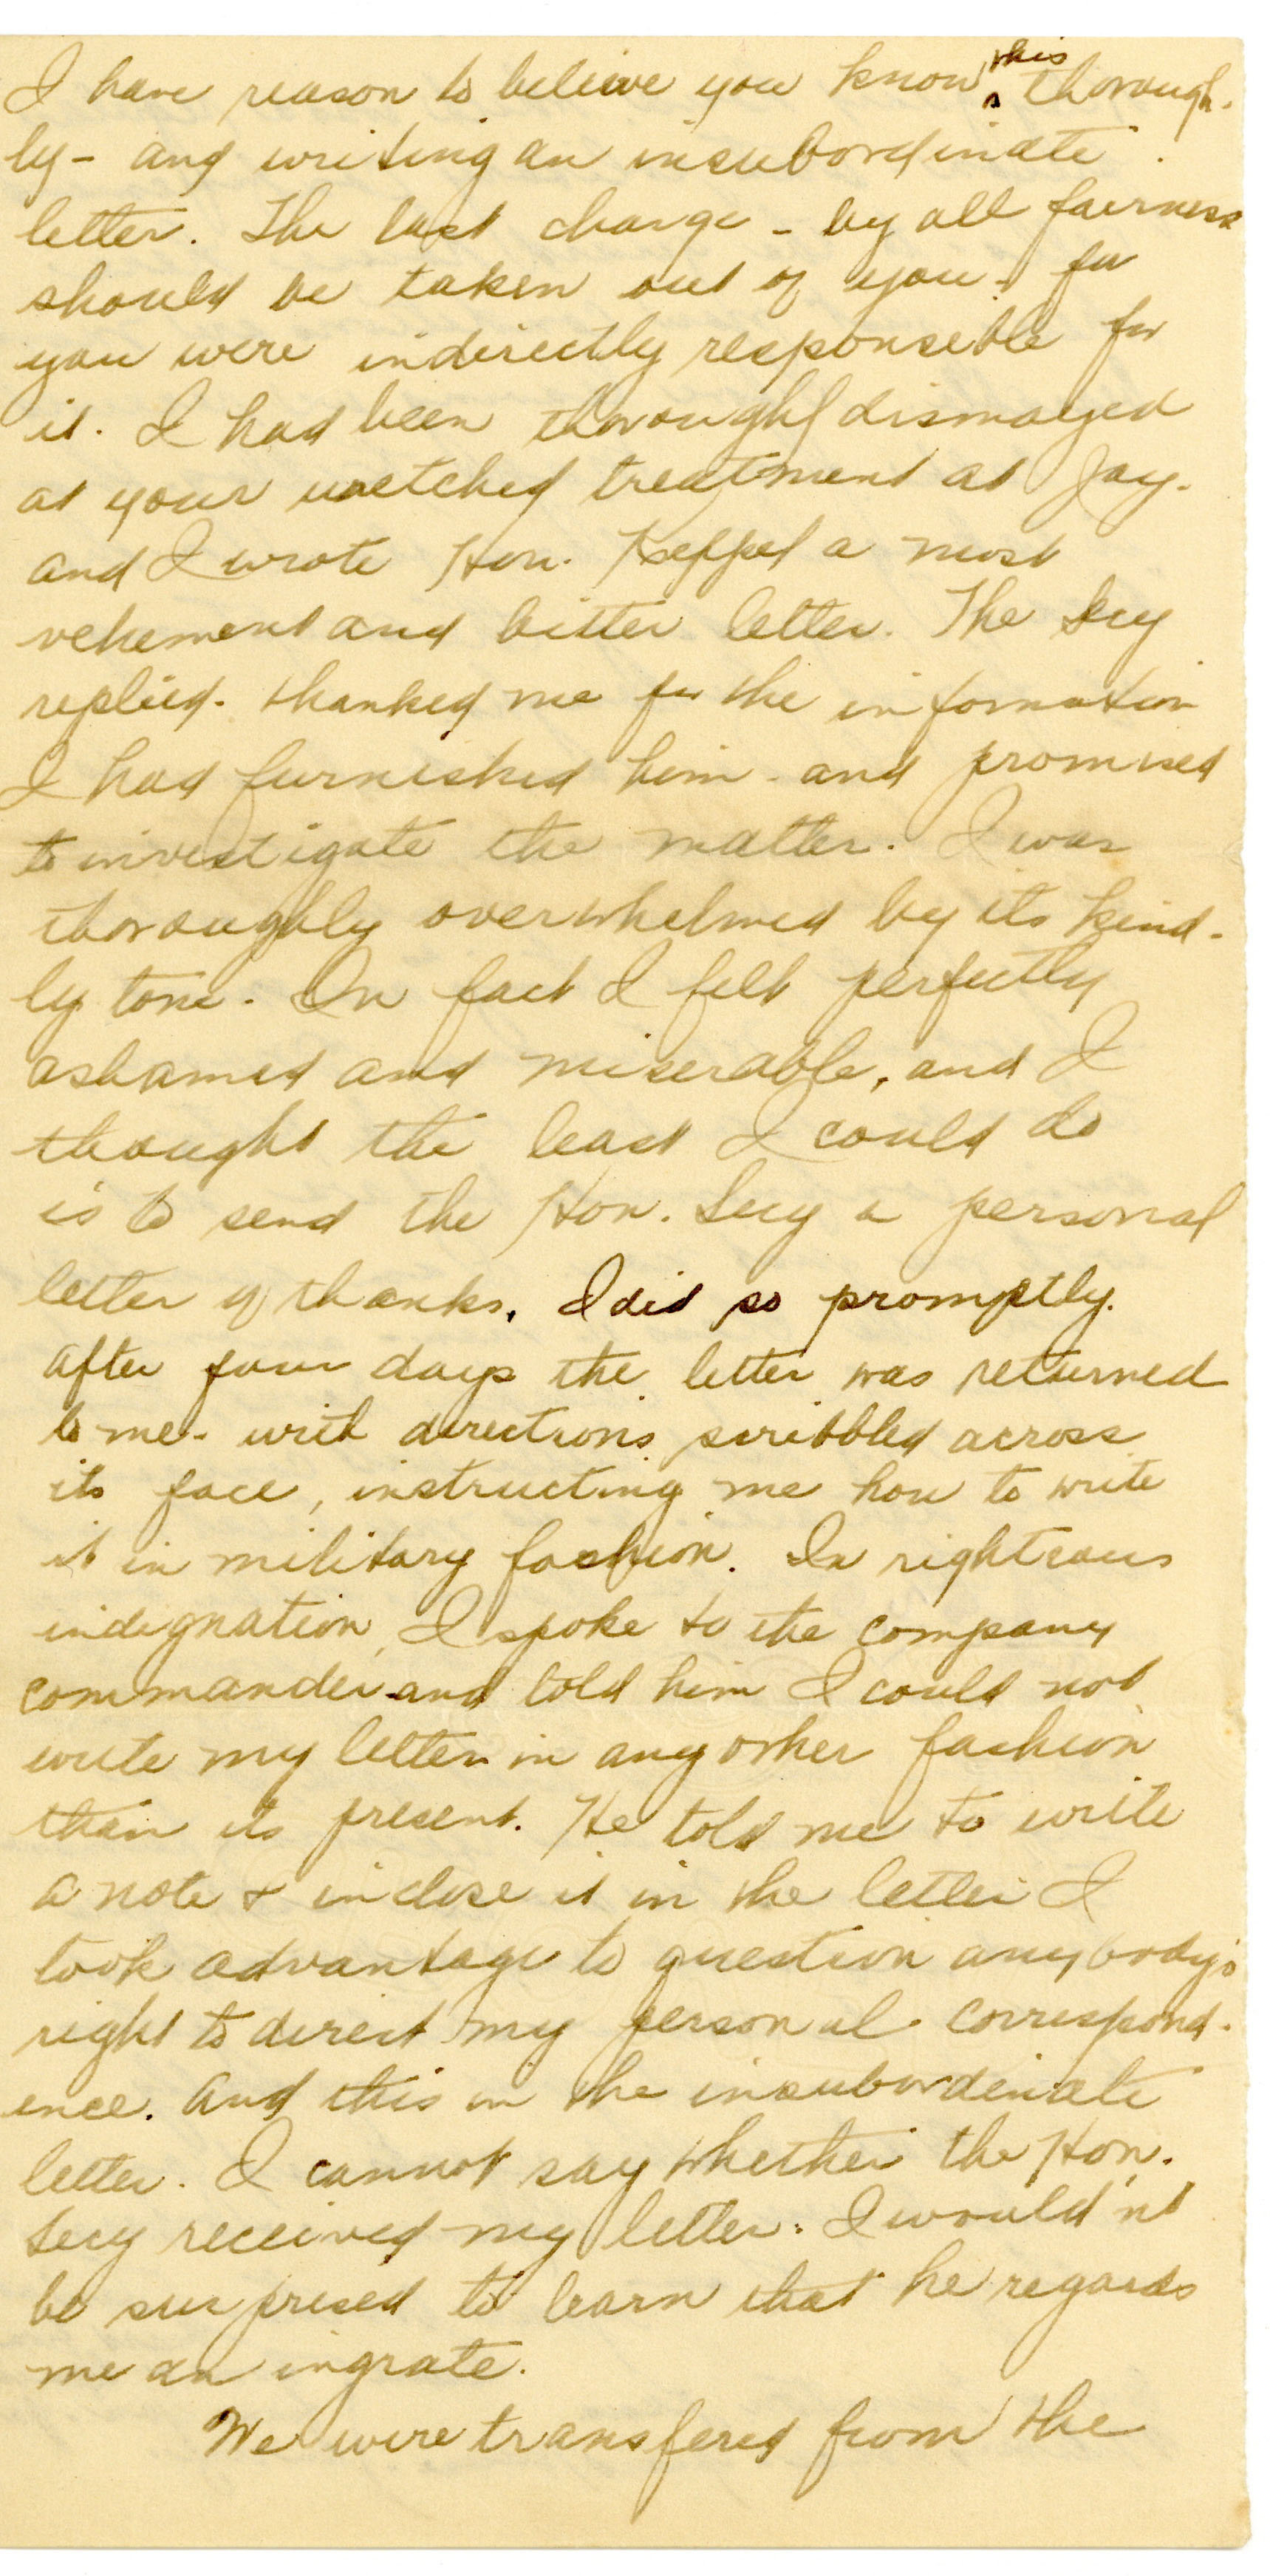 I have reason to believe you know this thorough-
ly - and writing an insubordinate
letter. The last charge - by all fairness
should be taken out of you - for
you were indirectly responsible for
it. I had been thoroughl dismayed
at your wretched treatment at Jay.
and I wrote Hon. Keppel a most
vehement and bitter letter. The Secy
replied. thanked me for the information
I had furnished him - and promised
to investigate the matter. I was
thoroughly overwhelmed by its kind-
ly tone. In fact I felt perfectly
ashamed and miserable, and I
thought the least I could do
is to send the Hon. Secy a personal
letter of thanks. I did so promptly.
After four days the letter was returned
to me - with directions scribbled across
its face, instructing me how to write
it in military fashion. In righteous
indignation, I spoke to the company
commander and told him I could not
write my letter in any other fashion
than its present. He told me to write
a note & inclose it in the letter I
took advantage to question anybody's
right to direct my personal correspond-
ence. And this in the insubordinate
letter. I cannot say whether the Hon.
Secy received my letter. I would'nt
be surprised to learn that he regards
me an ingrate.
We were transfered from the